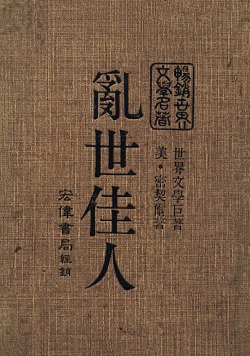 暢銷世界
文學名著
世界文學巨著
美·密契爾著
亂世佳人
宏偉書局經銷